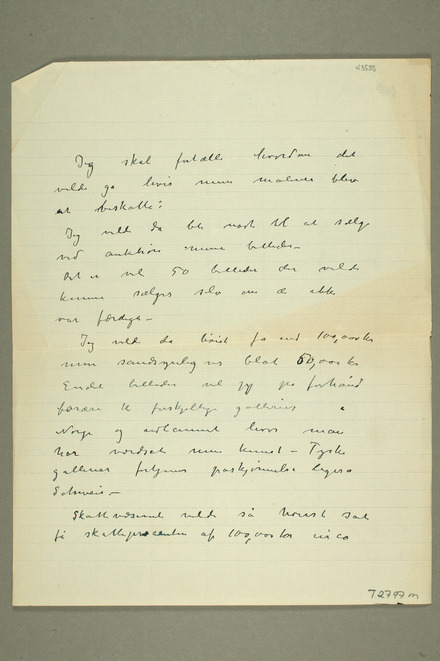 N3535
Jeg skal fortælle hvordan det
vilde gå hvis mine malerier blev
at beskatte:
Jeg vilde da bli nødt til at sælge
ved auktion mine billeder –
Det er vel 50 billeder der vilde
kunne sælges selv om de ikke
var færdige –
Jeg vilde da höist få ind 100,000 kr
men sandsynligvis blot 50,000 kr
Endel billeder vil jeg på forhånd
forære til forskjellige gallerier i
Norge og udlandet hvor man
har værdsat min kunst – Tyske
gallerier fortjener påskjönnelse ligeså
Schweiz –
Skattvæsenet vilde så höist
få skatteprocenten af 100,000 kr circa
T 2797 m